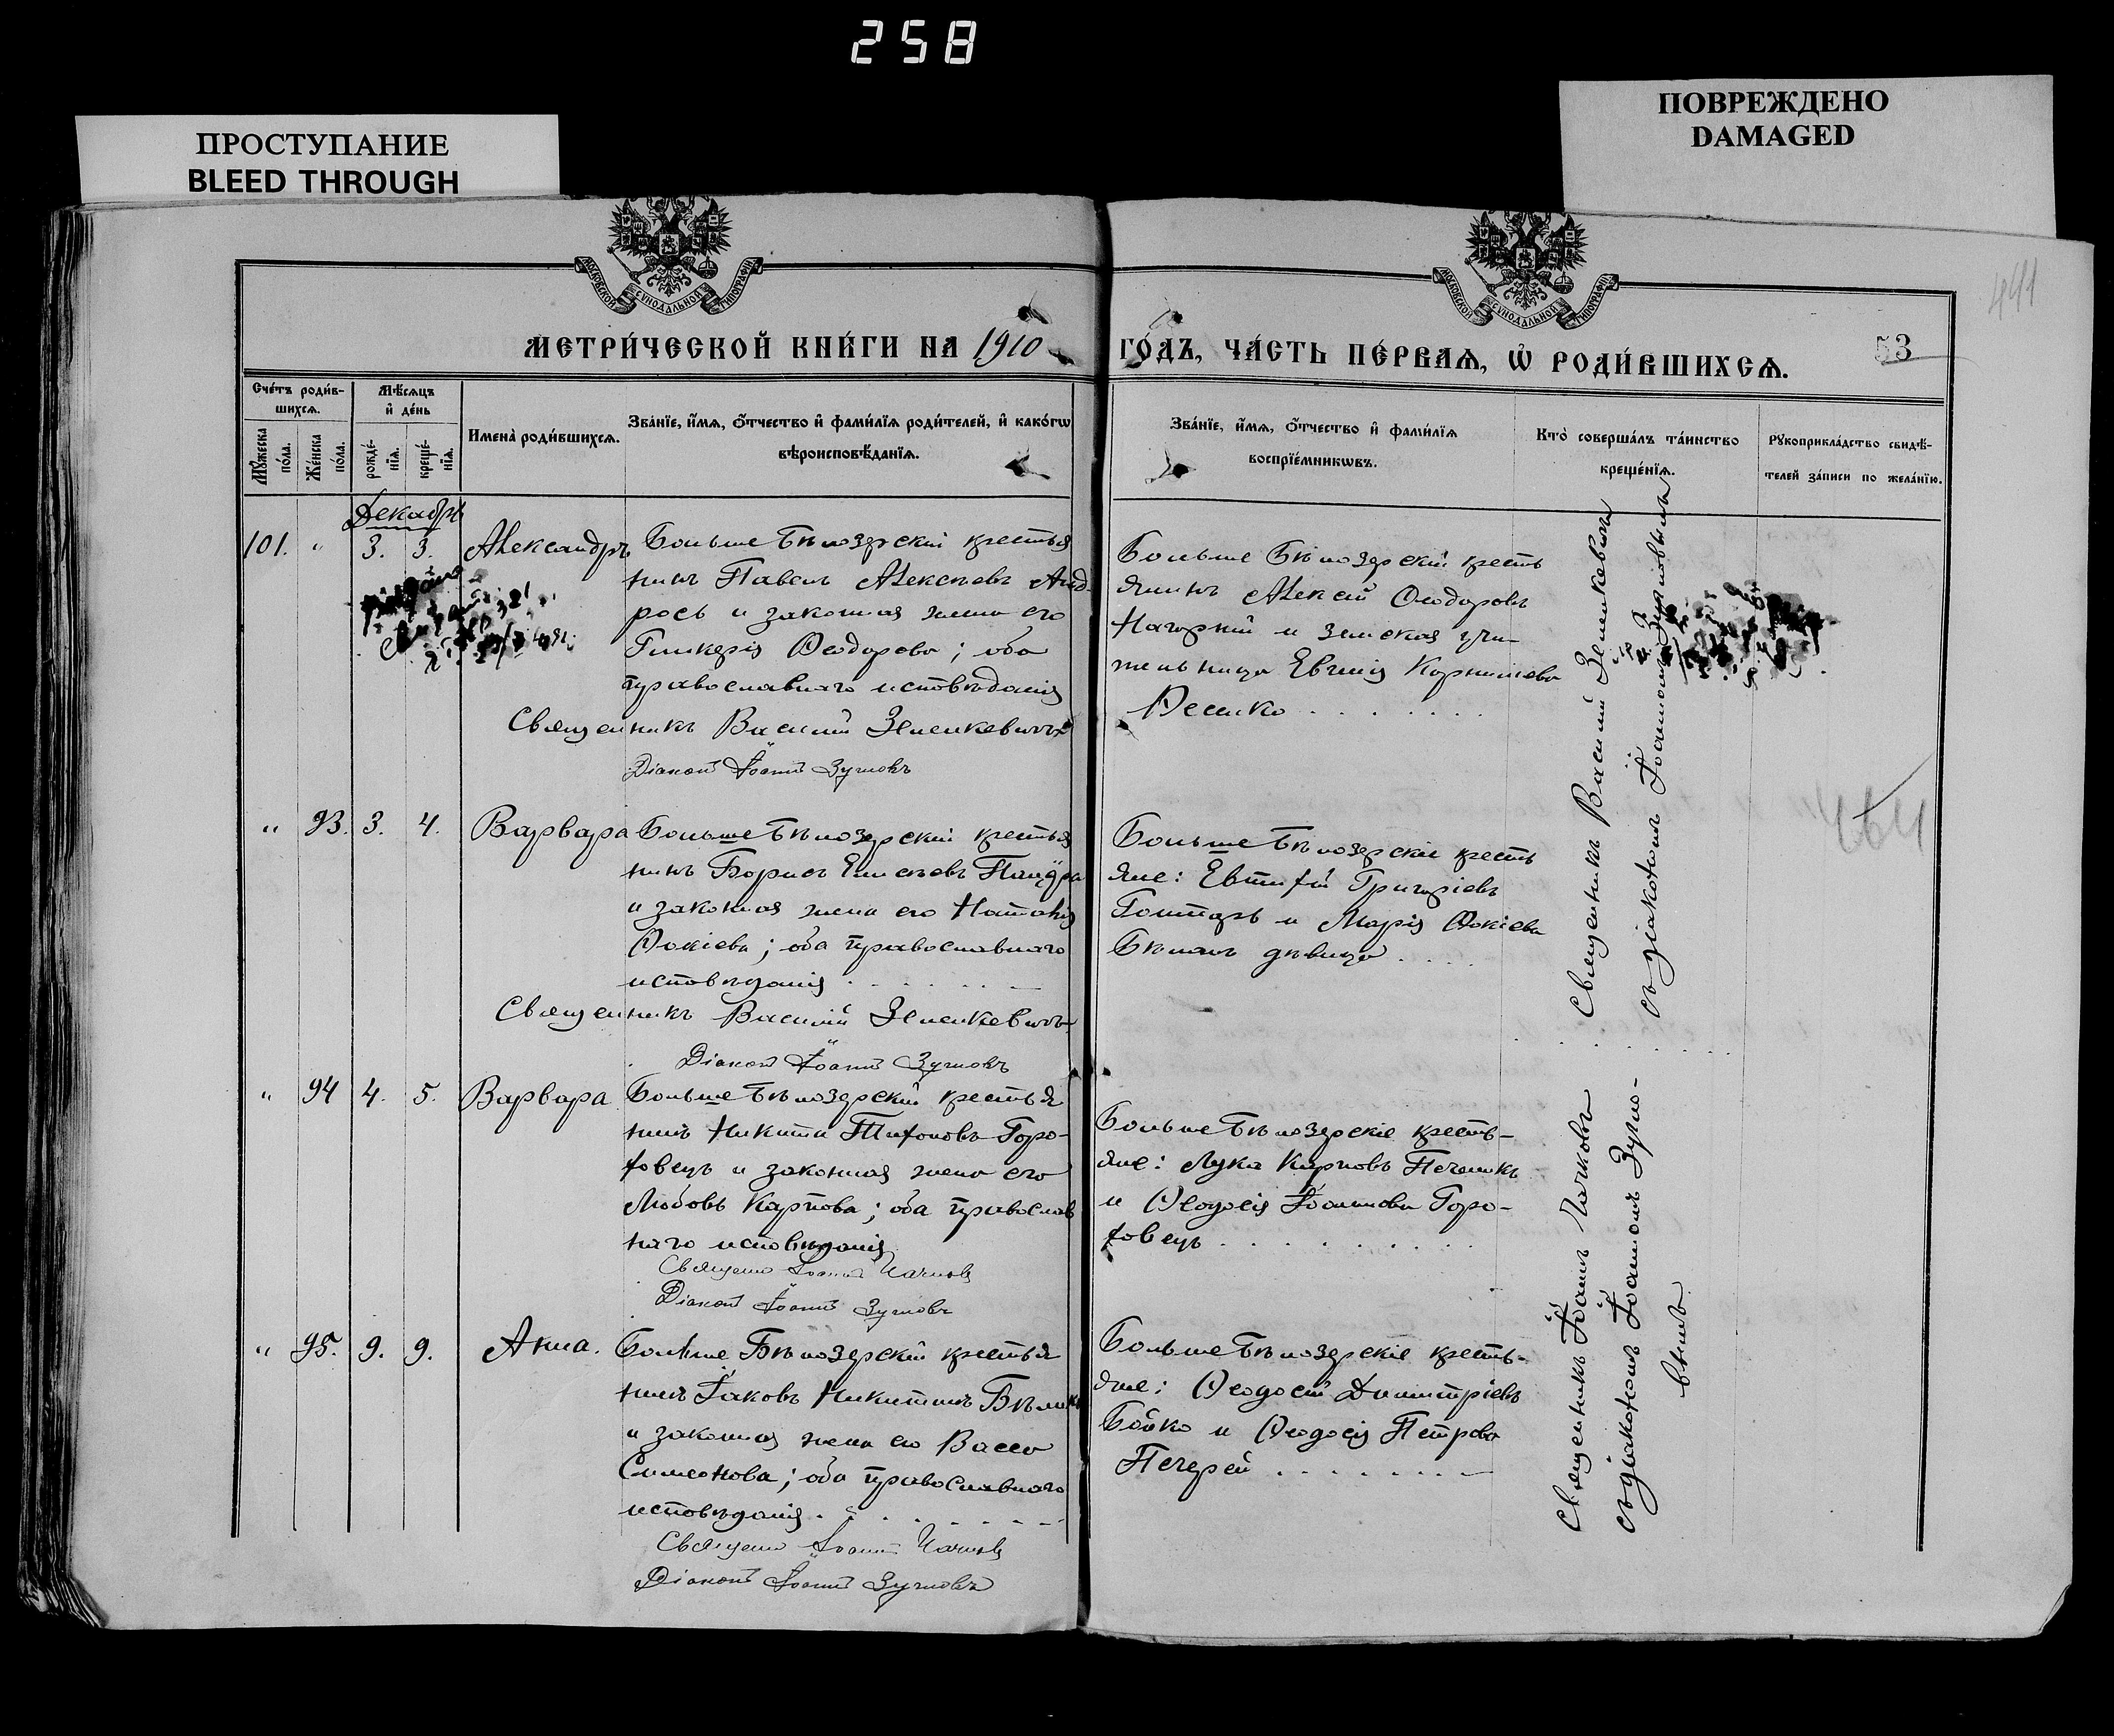 258
ПРОСТУПАНИЕ
BLEED THROUGH
ПОВРЕЖДЕНО
DAMAGED
МОСКОВСКОЙ СѴНОДАЛЬНОЙ ТИПОГРАФІИ
МОСКОВСКОЙ СѴНОДАЛЬНОЙ ТИПОГРАФІИ
441
МЕТРИ́ЧЕСКОЙ КНИ́ГИ НА 1910
ГО́ДЪ, ЧА́СТЬ ПЕ́РВАѦ, Ѡ҆ РОДИ́ВШИХСѦ.
53
Сче́тъ роди́в-
шихсѧ.
Мꙋ́жеска по́ла.
Же́нска по́ла.
Мѣ́сѧцъ
и҆ де́нь
рожде́-
нїѧ.
креще́-
нїѧ.
Имена̀ роди́вшихсѧ.
Зва́нїе, и҆́мѧ, ѻ҆́тчество и҆ фами́лїѧ роди́телей, и҆ како́гѡ
вѣроисповѣ́данїѧ.
Зва́нїе, и҆́мѧ, ѻ҆́тчество и҆ фами́лїѧ
воспрїе́мникѡвъ.
Кто̀ соверша́лъ та́инство
креще́нїѧ.
Рꙋкоприкла́дство свидѣ́-
телей за́писи по жела́нїю.
Декабрь
101. " 3. 3. Александръ
Больше Бѣлозерскій крестья
нинъ Павелъ Алексѣевъ Анд
рось и законная жена его
Гликерія Ѳеодорова; оба
православнаго исповѣданія
Священникъ Василій Зеленкевичъ
Діаконъ Іоаннъ Зугновъ
Больше Бѣлозерскій кресть
янинъ Алексій Ѳеодоровъ
Нагорный и земская учи-
тельница Евгенія Корнилиева
Священникъ Василій Зеленкевичъ
съ діакономъ Іоанномъ Зугновымъ
" 93. 3. 4. Варвара
Больше Бѣлозерскій крестья
нинъ Борисъ Елисѣевъ
и законная жена его Наталія
Ѳокіева; оба православнаго
исповѣданія
Священникъ Василій Зеленкевичъ
Діаконъ Іоаннъ Зугновъ
Больше Бѣлозерскіе кресть
яне: Евтихій Григоріевъ
и Марія Ѳокіева
дѣвица
464
" 94 4. 5. Варвара
Больше Бѣлозерскій крестья
нинъ Никита Тихоновъ Горо-
ховецъ и законная жена его
Любовь Карпова; оба православ
наго исповѣданія
Діаконъ Іоаннъ Зугновъ
Больше Бѣлозерскіе кресть-
яне: Лука Карповъ
и Ѳеодосія Іоаннова Горо-
ховецъ
Священникъ Іоаннъ
съ діакономъ Іоанномъ Зугно-
вымъ
" 95. 9. 9. Анна.
Больше Бѣлозерскій крестья
нинъ Іаковъ Никитинъ
и законная жена его Васса
Симеонова; оба православнаго
исповѣданія
Діаконъ Іоаннъ Зугновъ
Больше Бѣлозерскіе кресть-
яне: Ѳеодосій Димитріевъ
Бойко и Ѳеодосія Петрова
Печерей